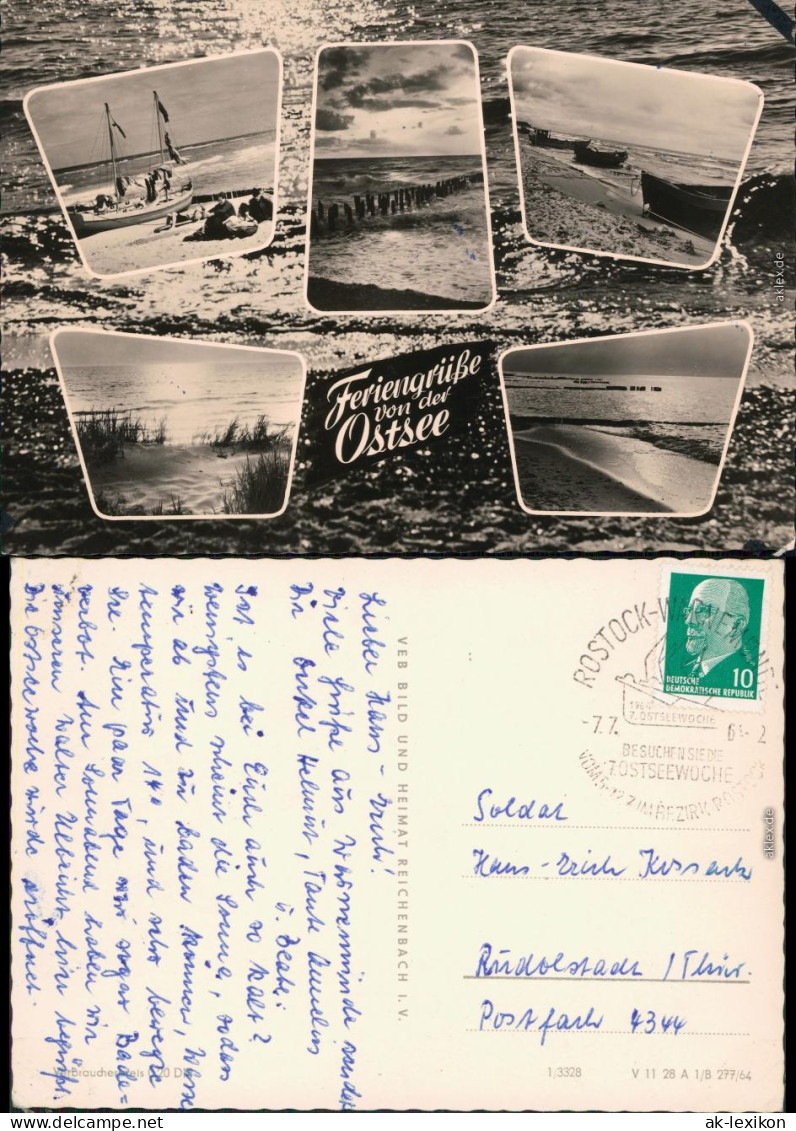 Feriengrüße
von der
Ostsee
aklex.de
Lieber Hans-Erich!
Viele Grüße aus Warnemünde sendet
Dir Onkel Helmut, Tante
u. Beate.
Ist es bei Euch auch so kalt?
Wenigstens scheint die Sonne, sodass
wir ab und zu baden können, Wasser
temperatur 14°, und sehr bewegte
See. Ein paar Tage war sogar Bade=
verbot. Am Sonnabend haben wir
unseren Walter Ulbricht hier begrüßt.
Die Ostseewoche wurde eröffnet.
VEB BILD UND HEIMAT REICHENBACH I. V.
ROSTOCK-WARNEMÜNDE
1964
7. OSTSEEWOCHE
-7.7. 64-2
BESUCHEN SIE DIE
7. OSTSEEWOCHE
VOM 5.-12.7. IM BEZIRK ROSTOCK
10
DEUTSCHE
DEMOKRATISCHE REPUBLIK
Soldat
Hans-Erich
Rudolstadt / Thür.
Postfach 4344
Verbraucherpreis 0,20 DM
1/3328
V 11 28 A 1/B 277/64
aklex.de
ak-lexikon